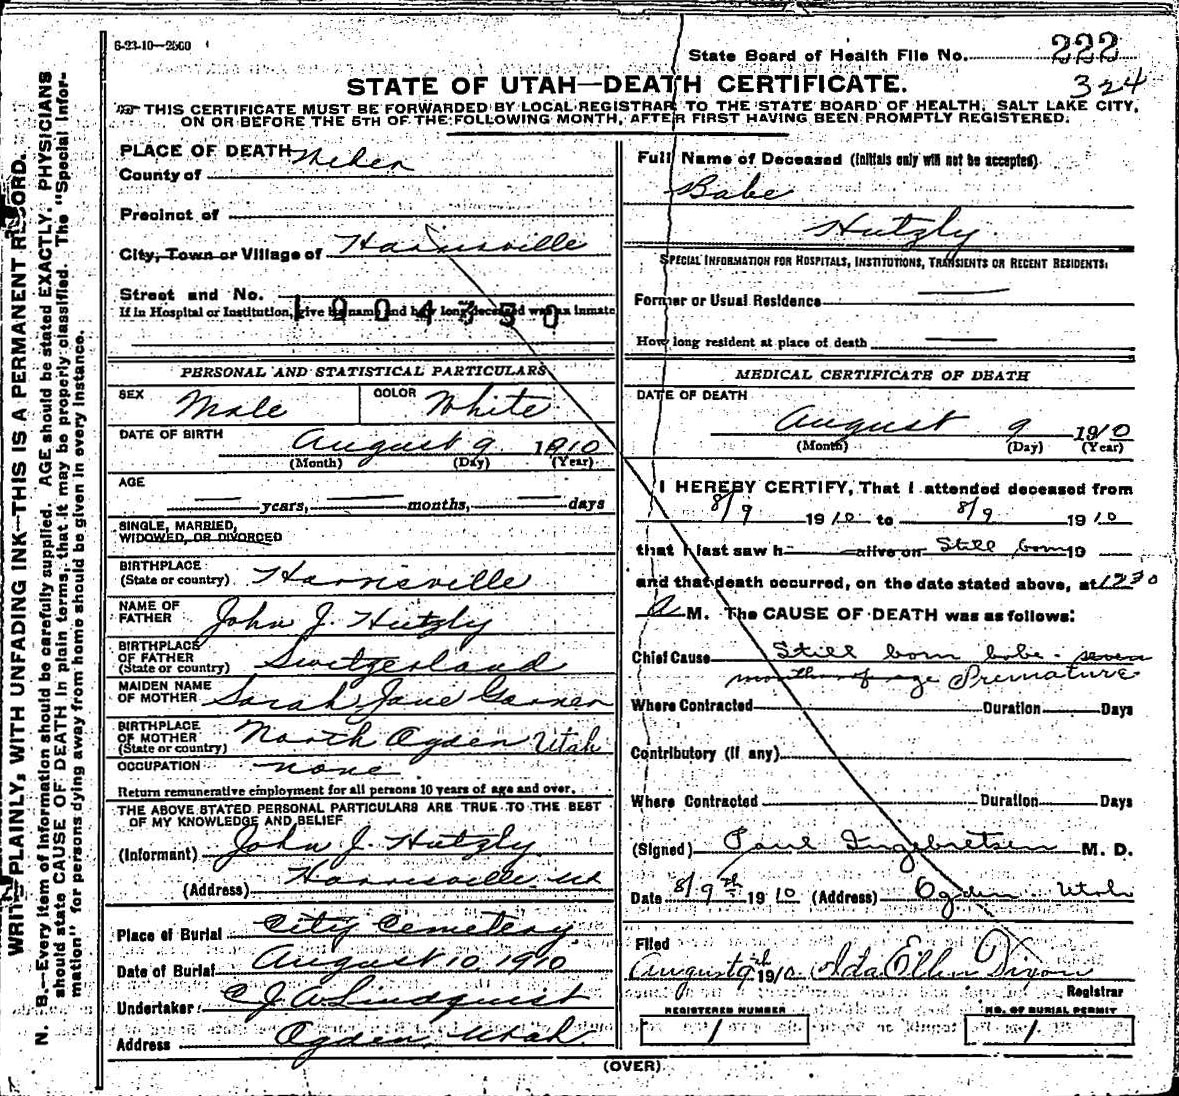 6-23-10—2500
State Board of Health File No. 222
324
STATE OF UTAH—DEATH CERTIFICATE.
THIS CERTIFICATE MUST BE FORWARDED BY LOCAL REGISTRAR TO THE STATE BOARD OF HEALTH, SALT LAKE CITY,
ON OR BEFORE THE 5TH OF THE FOLLOWING MONTH, AFTER FIRST HAVING BEEN PROMPTLY REGISTERED.
WRITE PLAINLY, WITH UNFADING INK—THIS IS A PERMANENT RECORD.
N. B.—Every item of information should be carefully supplied. AGE should be stated EXACTLY. PHYSICIANS
should state CAUSE OF DEATH in plain terms, that it may be properly classified. The "Special Infor-
mation" for persons dying away from home should be given in every instance.
PLACE OF DEATH
County of Weber
Precinct of
City, Town or Village of Harrisville
Street and No.
If in Hospital or Institution, give its name and how long deceased was an inmate
1904350
PERSONAL AND STATISTICAL PARTICULARS
SEX Male COLOR White
DATE OF BIRTH
August 9 1910
(Month) (Day) (Year)
AGE
years, months, days
SINGLE, MARRIED,
WIDOWED, OR DIVORCED
BIRTHPLACE
(State or country) Harrisville
NAME OF
FATHER John J. Hutzly
BIRTHPLACE
OF FATHER
(State or country) Switzerland
MAIDEN NAME
OF MOTHER Sarah Jane Garner
BIRTHPLACE
OF MOTHER
(State or country) North Ogden Utah
OCCUPATION none
Return remunerative employment for all persons 10 years of age and over.
THE ABOVE STATED PERSONAL PARTICULARS ARE TRUE TO THE BEST
OF MY KNOWLEDGE AND BELIEF
(Informant) John J. Hutzly
(Address) Harrisville Ut
Place of Burial City Cemetery
Date of Burial August 10, 1910
Undertaker C. J. A. Lindquist
Address Ogden, Utah.
Full Name of Deceased (Initials only will not be accepted)
Babe
Hutzly.
SPECIAL INFORMATION FOR HOSPITALS, INSTITUTIONS, TRANSIENTS OR RECENT RESIDENTS:
Former or Usual Residence
How long resident at place of death
MEDICAL CERTIFICATE OF DEATH
DATE OF DEATH
August 9 1910
(Month) (Day) (Year)
I HEREBY CERTIFY, That I attended deceased from
8/9 1910 to 8/9 1910
that I last saw h alive on Still born 19
and that death occurred, on the date stated above, at 1230
A M. The CAUSE OF DEATH was as follows:
Chief Cause Still born babe - seven
months of age Premature
Where Contracted Duration Days
Contributory (if any)
Where Contracted Duration Days
(Signed) Paul Ingebretsen M. D.
Date 8/9th 1910 (Address) Ogden Utah
Filed
August 9th 1910. Ida Ellen Dixon
Registrar
REGISTERED NUMBER NO. OF BURIAL PERMIT
1 1
(OVER)